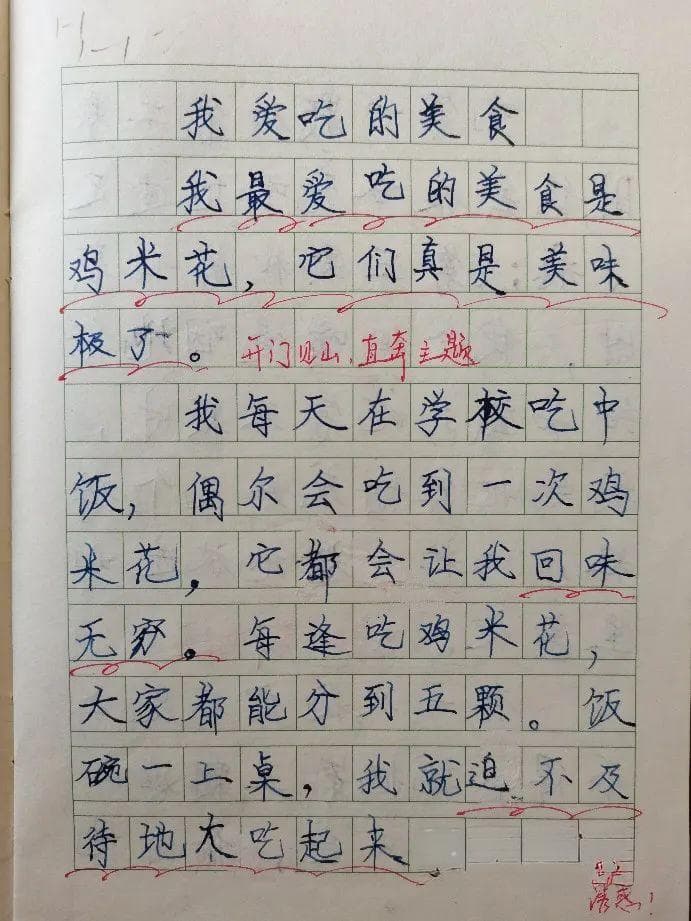 我爱吃的美食
我最爱吃的美食是
鸡米花，它们真是美味
极了。 开门见山，直奔主题
我每天在学校吃中
饭，偶尔会吃到一次鸡
米花，它都会让我回味
无穷。每逢吃鸡米花，
大家都能分到五颗。饭
碗一上桌，我就迫不及
待地大吃起来
诱惑！